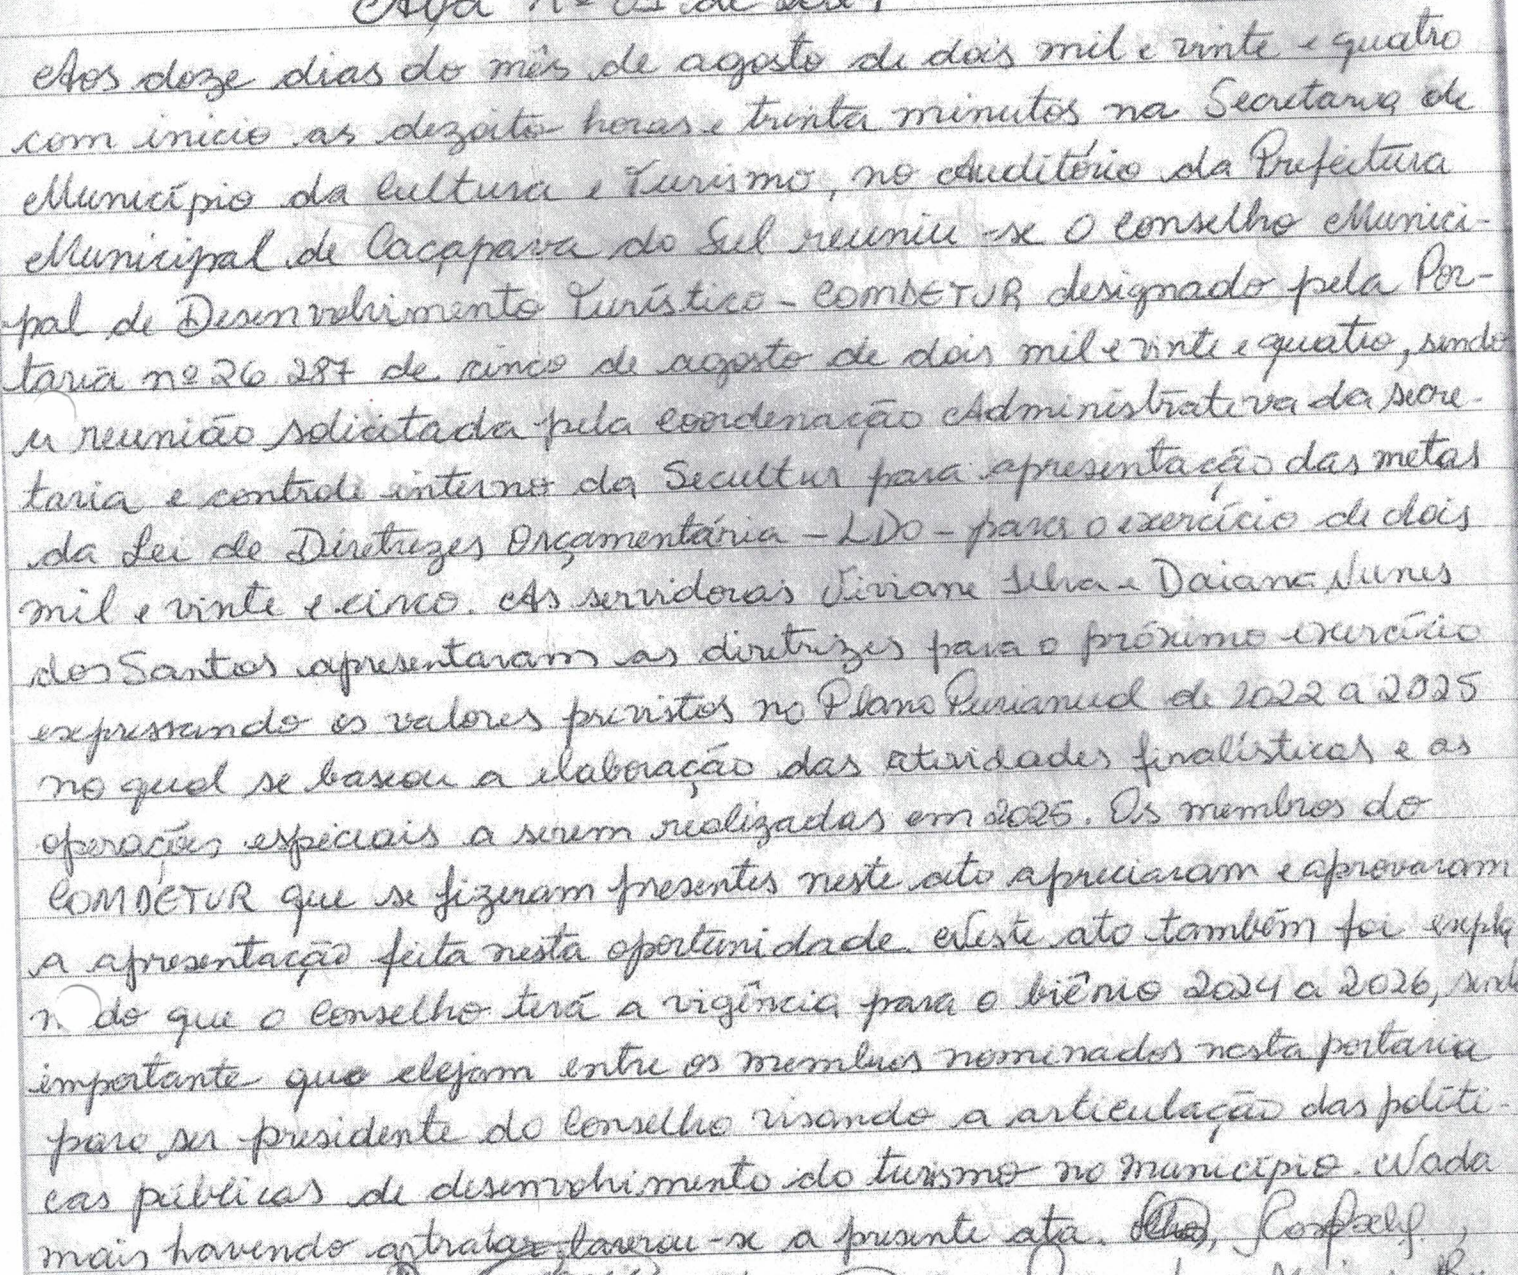 Ata nº 01 de 2024
Aos doze dias do mês de agosto de dois mil e vinte e quatro
com inicio as dezoito horas e trinta minutos na Secretaria de
Município da Cultura e Turismo, no Auditório da Prefeitura
Municipal de Caçapava do Sul reuniu-se o Conselho Munici-
pal de Desenvolvimento Turístico - COMDETUR designado pela Por-
taria nº 26.287 de cinco de agosto de dois mil e vinte e quatro, sendo
a reunião solicitada pela Coordenação Administrativa da secre-
taria e controle interno da Secultur para apresentação das metas
da Lei de Diretrizes Orçamentária - LDO - para o exercício de dois
mil e vinte e cinco. As servidoras Viviane Silva e Daiane Nunes
dos Santos apresentaram as diretrizes para o próximo exercício
expressando os valores previstos no Plano Purianual de 2022 a 2025
no qual se baseou a elaboração das atividades finalísticas e as
operações especiais a serem realizadas em 2025. Os membros do
COMDETUR que se fizeram presentes neste ato apreciaram e aprovaram
a apresentação feita nesta oportunidade. Neste ato também foi expla
n do que o Conselho terá a vigência para o biênio 2024 a 2026, sendo
importante que elejam entre os membros nominados nesta portaria
para ser presidente do Conselho visando a articulação das políti-
cas públicas de desenvolvimento do turismo no município. Nada
mais havendo a tratar lavrou-se a presente ata.